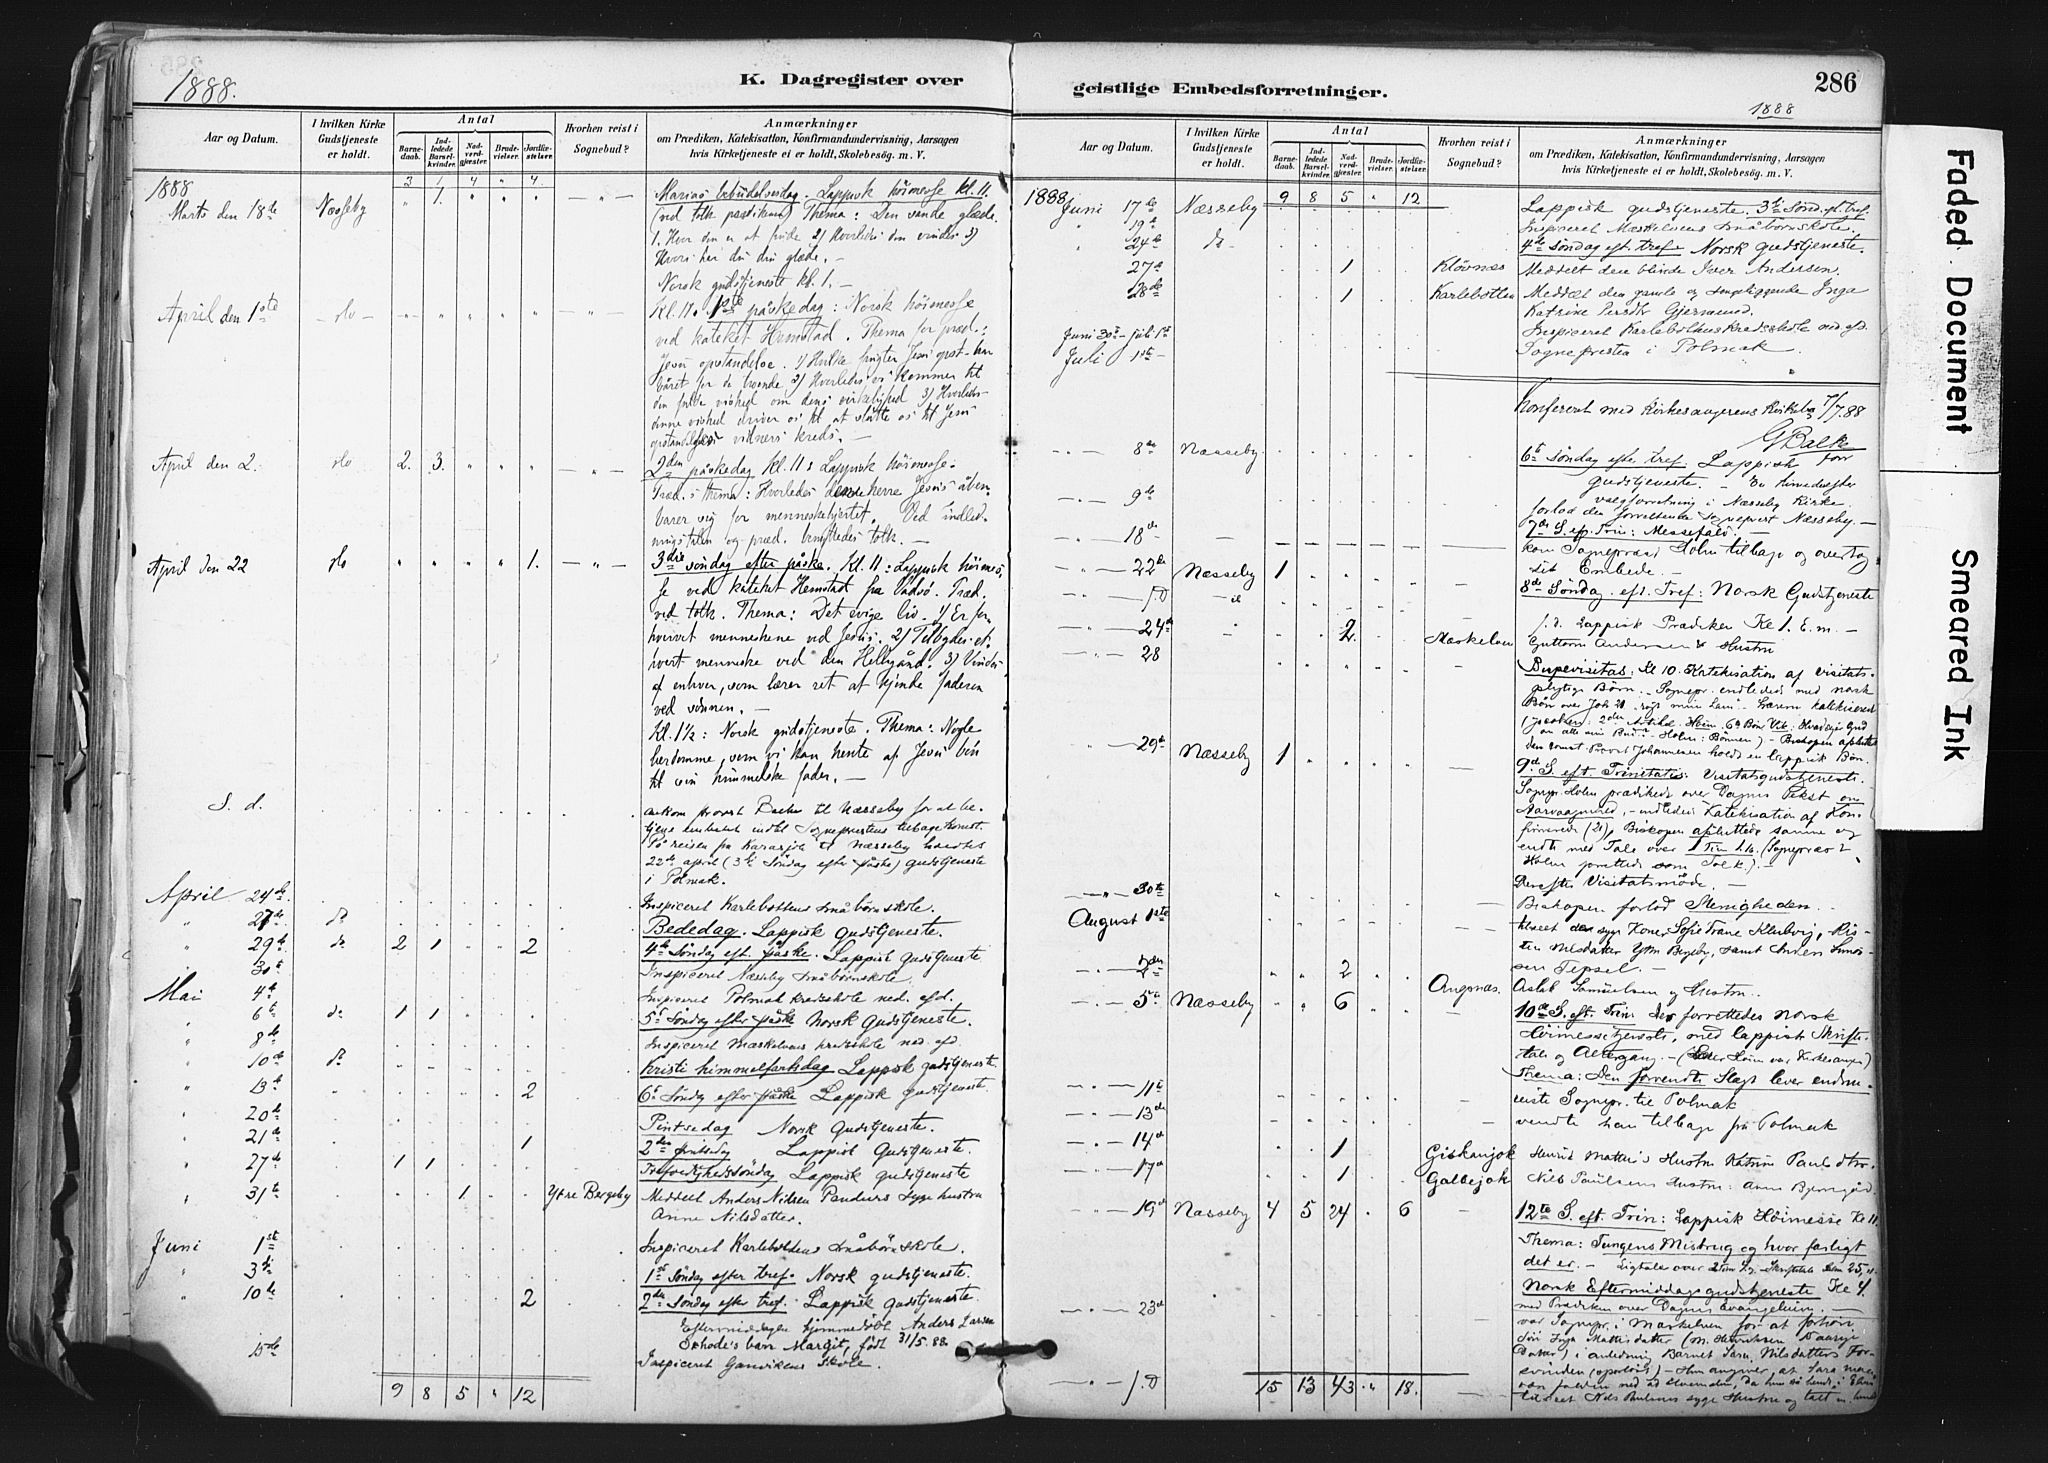 1888.
K. Dagregister over
Aar og Datum.
I hvilken Kirke Gudstjeneste er holdt.
Antal
Barnedaab.
Indledede Barselkvinder.
Nadverdgjæster.
Brudevielser.
Jordfæstelser.
Hvorhen reist i Sognebud?
Anmærkninger
om Prædiken, Katekisation, Konfirmandundervisning, Aarsagen
hvis Kirketjeneste ei er holdt, Skolebesøg. m. V.
3 1 4 " 4.
1888
Marts den 18de Næsseby " 1. " " " — " — Mariæ bebudelsesdag. Lappisk höimesse kl. 11.
(ved tolk) Thema: Den sande glæde.
1. Hvor den er at finde 2) Hvorledes den vindes 3)
Hvori har du din glæde. —
Norsk gudstjeneste kl. 1. —
April den 1ste — do — " " " " " — " — Kl. 11. 1ste påskedag: Norsk höimesse
ved kateket Hemstad. Thema for præd.:
Jesu opstandelse. 1) Hvilke frugter Jesu opst. har
båret for de troende 2) Hvorledes vi kommer til
den fulde vished om dens virkelighed 3) Hvorledes
denne vished driver os til at slutte os til Jesu
opstandelses vidners kreds. —
April den 2. do 2. 3. " " " — " — 2den påskedag kl. 11: Lappisk höimesse.
Præd.s thema: Hvorledes den herre Jesus åben-
barer sig for menneskehjertet. Ved indled-
ningstalen og præd. benyttedes tolk. —
April den 22 do " " " " 1. — " — 3die söndag efter påske. Kl. 11: Lappisk höimes-
se ved kateket Hemstad fra Vadsö. Præd.
ved tolk. Thema: Det evige liv. 1) Er for-
hvervet menneskene ved Jesus. 2) Tilbydes et-
hvert menneske ved den Helligånd. 3) Vindes
af enhver, som lærer ret at kjende faderen
ved sönnen. —
Kl. 1½: Norsk gudstjeneste. Thema: Nogle
ber­ömme, som vi kan hente af Jesu bön
til sin himmelske fader. —
S. d. ankom provst Balke til Næsseby for at be-
tjene embedet indtil Sogneprestens tilbagekomst.
På reisen fra Karasjok til Næsseby holdtes
22de april (3die Söndag efter påske) gudstjeneste
i Polmak.
April 24de Inspiceret Karlebottens småbörnskole.
" 27de do Bededag. Lappisk Gudstjeneste.
" 29de do 2 1 2 4de Söndag eft. påske. Lappisk Gudstjeneste
" 30te Inspiceret Næsseby Småbörnskole
Mai 4de Inspiceret Polmak kredsskole ned. afd.
" 6te do 1 1 5te Söndag efter påske Norsk Gudstjeneste.
" 8de Inspiceret Mæskelvens kredsskole ned. afd.
" 10de do Kristi himmelfartsdag Lappisk gudstjeneste.
" 13de 2 6te Söndag efter påske Lappisk gudstjeneste.
" 20de Pintsedag Norsk Gudstjeneste.
" 21de 1 2den pintsedag Lappisk Gudstjeneste.
" 27de 1 1 Trefoldighedssöndag Lappisk gudstjeneste
" 31te 1 Ytre Bergeby Meddelt Anders Nilsen Panders syge hustru
Anne Nilsdatter.
Juni 1ste Inspiceret Karlebottens Småbörnskole.
" 3die 1ste Söndag efter tref. Norsk gudstjeneste.
" 10de 2 2den Söndag efter tref. Lappisk Gudstjeneste
Eftermiddagen hjemmedöbt Anders Larsen
Skhode's barn Margit, född 31/5. 88.
15de Inspiceret Gandvikens Skole.
9 8 5 " 12
geistlige Embedsforretninger.
286
1888
Aar og Datum.
I hvilken Kirke Gudstjeneste er holdt.
Antal
Barnedaab.
Indledede Barselkvinder.
Nadverdgjæster.
Brudevielser.
Jordfæstelser.
Hvorhen reist i Sognebud?
Anmærkninger
om Prædiken, Katekisation, Konfirmandundervisning, Aarsagen
hvis Kirketjeneste ei er holdt, Skolebesøg. m. V.
1888 9 8 5 " 12
Juni 17de Næsseby Lappisk gudstjeneste. 3die Sönd. eft. tref.
" 19de Inspiceret Mæskelvens Småbörnskole.
" 24de do 4de Söndag eft. tref Norsk Gudstjeneste.
27de 1 Klövnes Meddelt den blinde Iver Andersen.
28de 1 Karlebotten Meddelt den gamle og sengeliggende Inga
Katrine Persdtr
Juni 30te – juli 1ste Inspiceret Karlebottens kredsskole ned. afd.
Juli 1ste — Sognepresten i Polmak.
Konfereret med Kirkesangerens Kirkebog 7/7.88
G Balke
— " — 8de Næsseby 6te Söndag efter tref. Lappisk
gudstjeneste. — En
— " — 9de valgforretning i Næsseby Kirke
forlod den forrettende Sogneprest Næsseby. —
7de S. ef. Trin: Messefald. —
— " — 18de — kom Sogneprest Holm tilbage og overtog
sit Embede. —
— " — 22de Næsseby 1 8de Söndag. eft. Tref: Norsk Gudstjeneste
— " — s. D s. d. Lappisk Prædiken Kl 1. E. m. —
— " — 24de 2 Mæskelven Guttorm Andersen & Hustru
— " — 28 Bispevisitas: Kl 10. Katekisation af visitats-
pligtige Börn. — Sognepr. indledede med norsk
Bön over Joh 21 "rögt mine Lam". Læreren katekiserede
Biskopen afsluttede
den samt. Provst Johannesen holdt en lappisk Bön.
— " — 29de Næsseby 1 9de S. eft. Trinitatis: Visitatsgudstjeneste.
Sognpr. Holm prædikede over Dagens Tekst om
Aarvaagenhed, — indledede Katekisation af Kon-
firmerede (21), Biskopen afsluttede samme og
endte med Tale over 1 Tim (Sognepræst
Holm forrettede som Tolk). —
Derefter Visitatsmöde. —
— " — 30te Biskopen forlod Menigheden. —
August 1ste besöct den syge Kone Sofie Trane Klubvig, Kir-
sten Nilsdatter Ytre Bergeby, samt Anders
Tepsel. —
— " — 2den 2 Angsnæs. Aslak Samuelsen og Hustru.
— " — 5te Næsseby 6 10de S. eft. Trin: Der forrettedes norsk
Höimessetjeneste, med lappisk Skrifte-
tale og Altergang. —
Thema: Den forvendte Slegt lever endnu
— " — 11te reiste Sognepr. til Polmak
— " — 13de vendte han tilbage fra Polmak
— " — 14de 1 Giskanjok Henrik Mathis's Hustru Katrine Paulsdtr.
— " — 17de 1 Galbejok Nils Paulsens Hustru: Anne
— " — 19de Næsseby 4 5 24 6 12te S. eft. Trin: Lappisk Höimesse Kl 11.
Thema: Tungens Misbrug og hvor farligt
det er. —
Norsk Eftermiddagsgudstjeneste Kl 4.
med Prædiken over Dagens Evangelium. —
— " — 23de var Sognepr. i Mæskelven for at forhöre
— " — s. D
15 13 43 " 18.
Faded Document
Smeared Ink